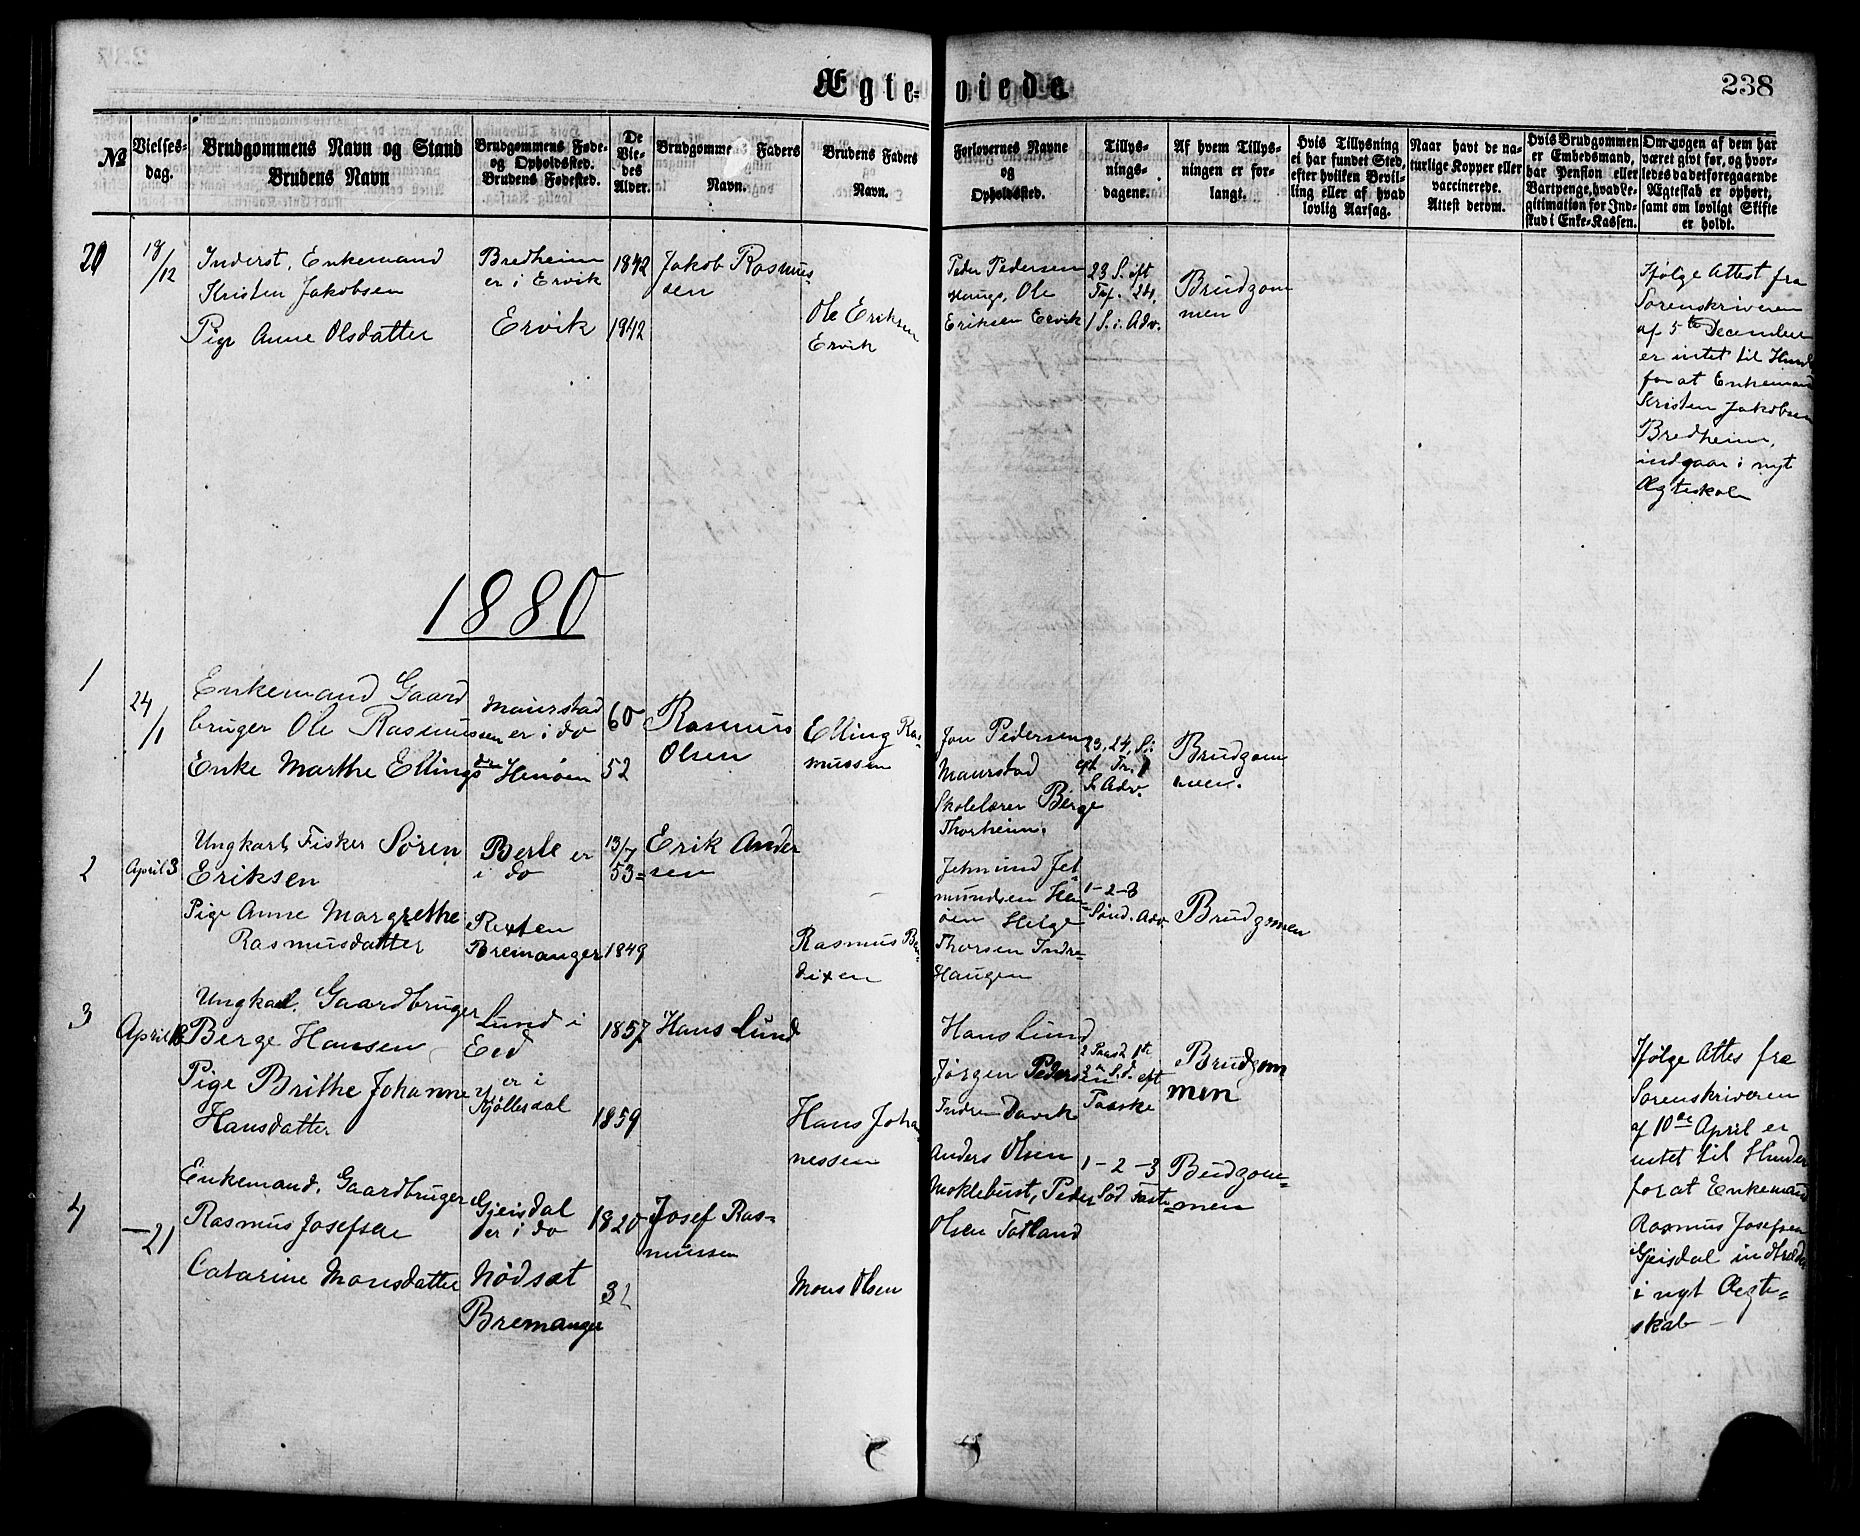 Ægte-viede.
238
№
Vielses-
dag.
Brudgommens Navn og Stand
Brudens Navn
Brudgommens Føde-
og Opholdssted.
Brudens Fødested.
De
Vie-
des
Alder.
Brudgommens Faders
Navn.
Brudens Faders
Navn.
Forlovernes Navne
og
Opholdssted.
Tillys-
nings-
dagene.
Af hvem Tillys-
ningen er for-
langt.
Hvis Tillysning
ei har fundet Sted,
efter hvilken Bevil-
ling eller af hvad
lovlig Aarsag.
Naar havt de na-
turlige Kopper eller
vaccinerede.
Attest derom.
Hvis Brudgommen
er Embedsmand,
har Pension eller
Vartpenge, hvad Le-
gitimation for Ind-
skud i Enke-Kassen.
Om nogen af dem har
været gift før, og hvor-
ledes da det foregaaende
Ægteskab er ophørt,
samt om lovligt Skifte
er holdt.
20
18/12
Inderst, Enkemand
Kristen Jakobsen
Pige Anne Olsdatter
Bredheim
er i Ervik
Ervik
1842
1842
Jakob Rasmus-
sen
Ole Eriksen
Ervik
Peder Pedersen
Haugs, Ole
Eriksen Ervik
23 S. eft
Tref. 24,
1 S. i Adv.
Brudgom
men
Ifølge Attest fra
Sorenskriveren
af 5te December
er intet til Hind
for at Enkemand
Kristen Jakobsen
Bredheim,
indgaar i nyt
Ægteskab
1880
1
24/1
Enkemand Gaard
bruger Ole Rasmussen
Enke Marthe Ellingsdtr
Maurstad
er i do
Henøen
60
52
Rasmus
Olsen
Elling Ras-
mussen
Jon Pedersen
Maurstad
Skolelærer Børge
Thorheim.
23, 24, S. i
eft. Tr. 1
S. Adv.
Brudgom
men.
2
April 3
Ungkarl, Fisker Søren
Eriksen
Pige Anne Margrethe
Rasmusdatter
Berle er
i do
Rexten
Bremanger
13/7
53
1849
Erik Ander
sen
Rasmus Ben-
dixen
Jetmund Jet
mundsen Hen-
øen Helge
Thorsen Indre-
Haugen
1-2-3
Sønd. Adv.
Brudgmen
3
April 18
Ungkarl, Gaardbruger
Berge Hansen
Pige Brithe Johanne
Hansdatter
Lund i
Eid
er i
Kjøllesdal
1857
1859
Hans Lund
Hans Joha-
nessen
Hans Lund
Jørgen Pedersen
Indre Davik
2 Paasd 1te
2n S. d. eft
Paaske
Brudgom
men
Ifølge Attes fra
Sorenskriveren
af 10de April er
intet til Hinder
for at Enkemand
Rasmus Josefsen
i Gjeisdal indtræder
i nyt Ægte-
skab -
4
- 21
Enkemand, Gaardbruger
Rasmus Josefsen
Catarine Monsdatter
Gjeisdal
er i do
Nødset
Bremanger
1820
32
Josef Ras-
mussen
Mons Olsen
Anders Olsen
Moklebust, Peder
Olsen Totland
1-2-3
Sød Faste
Brudgom-
men